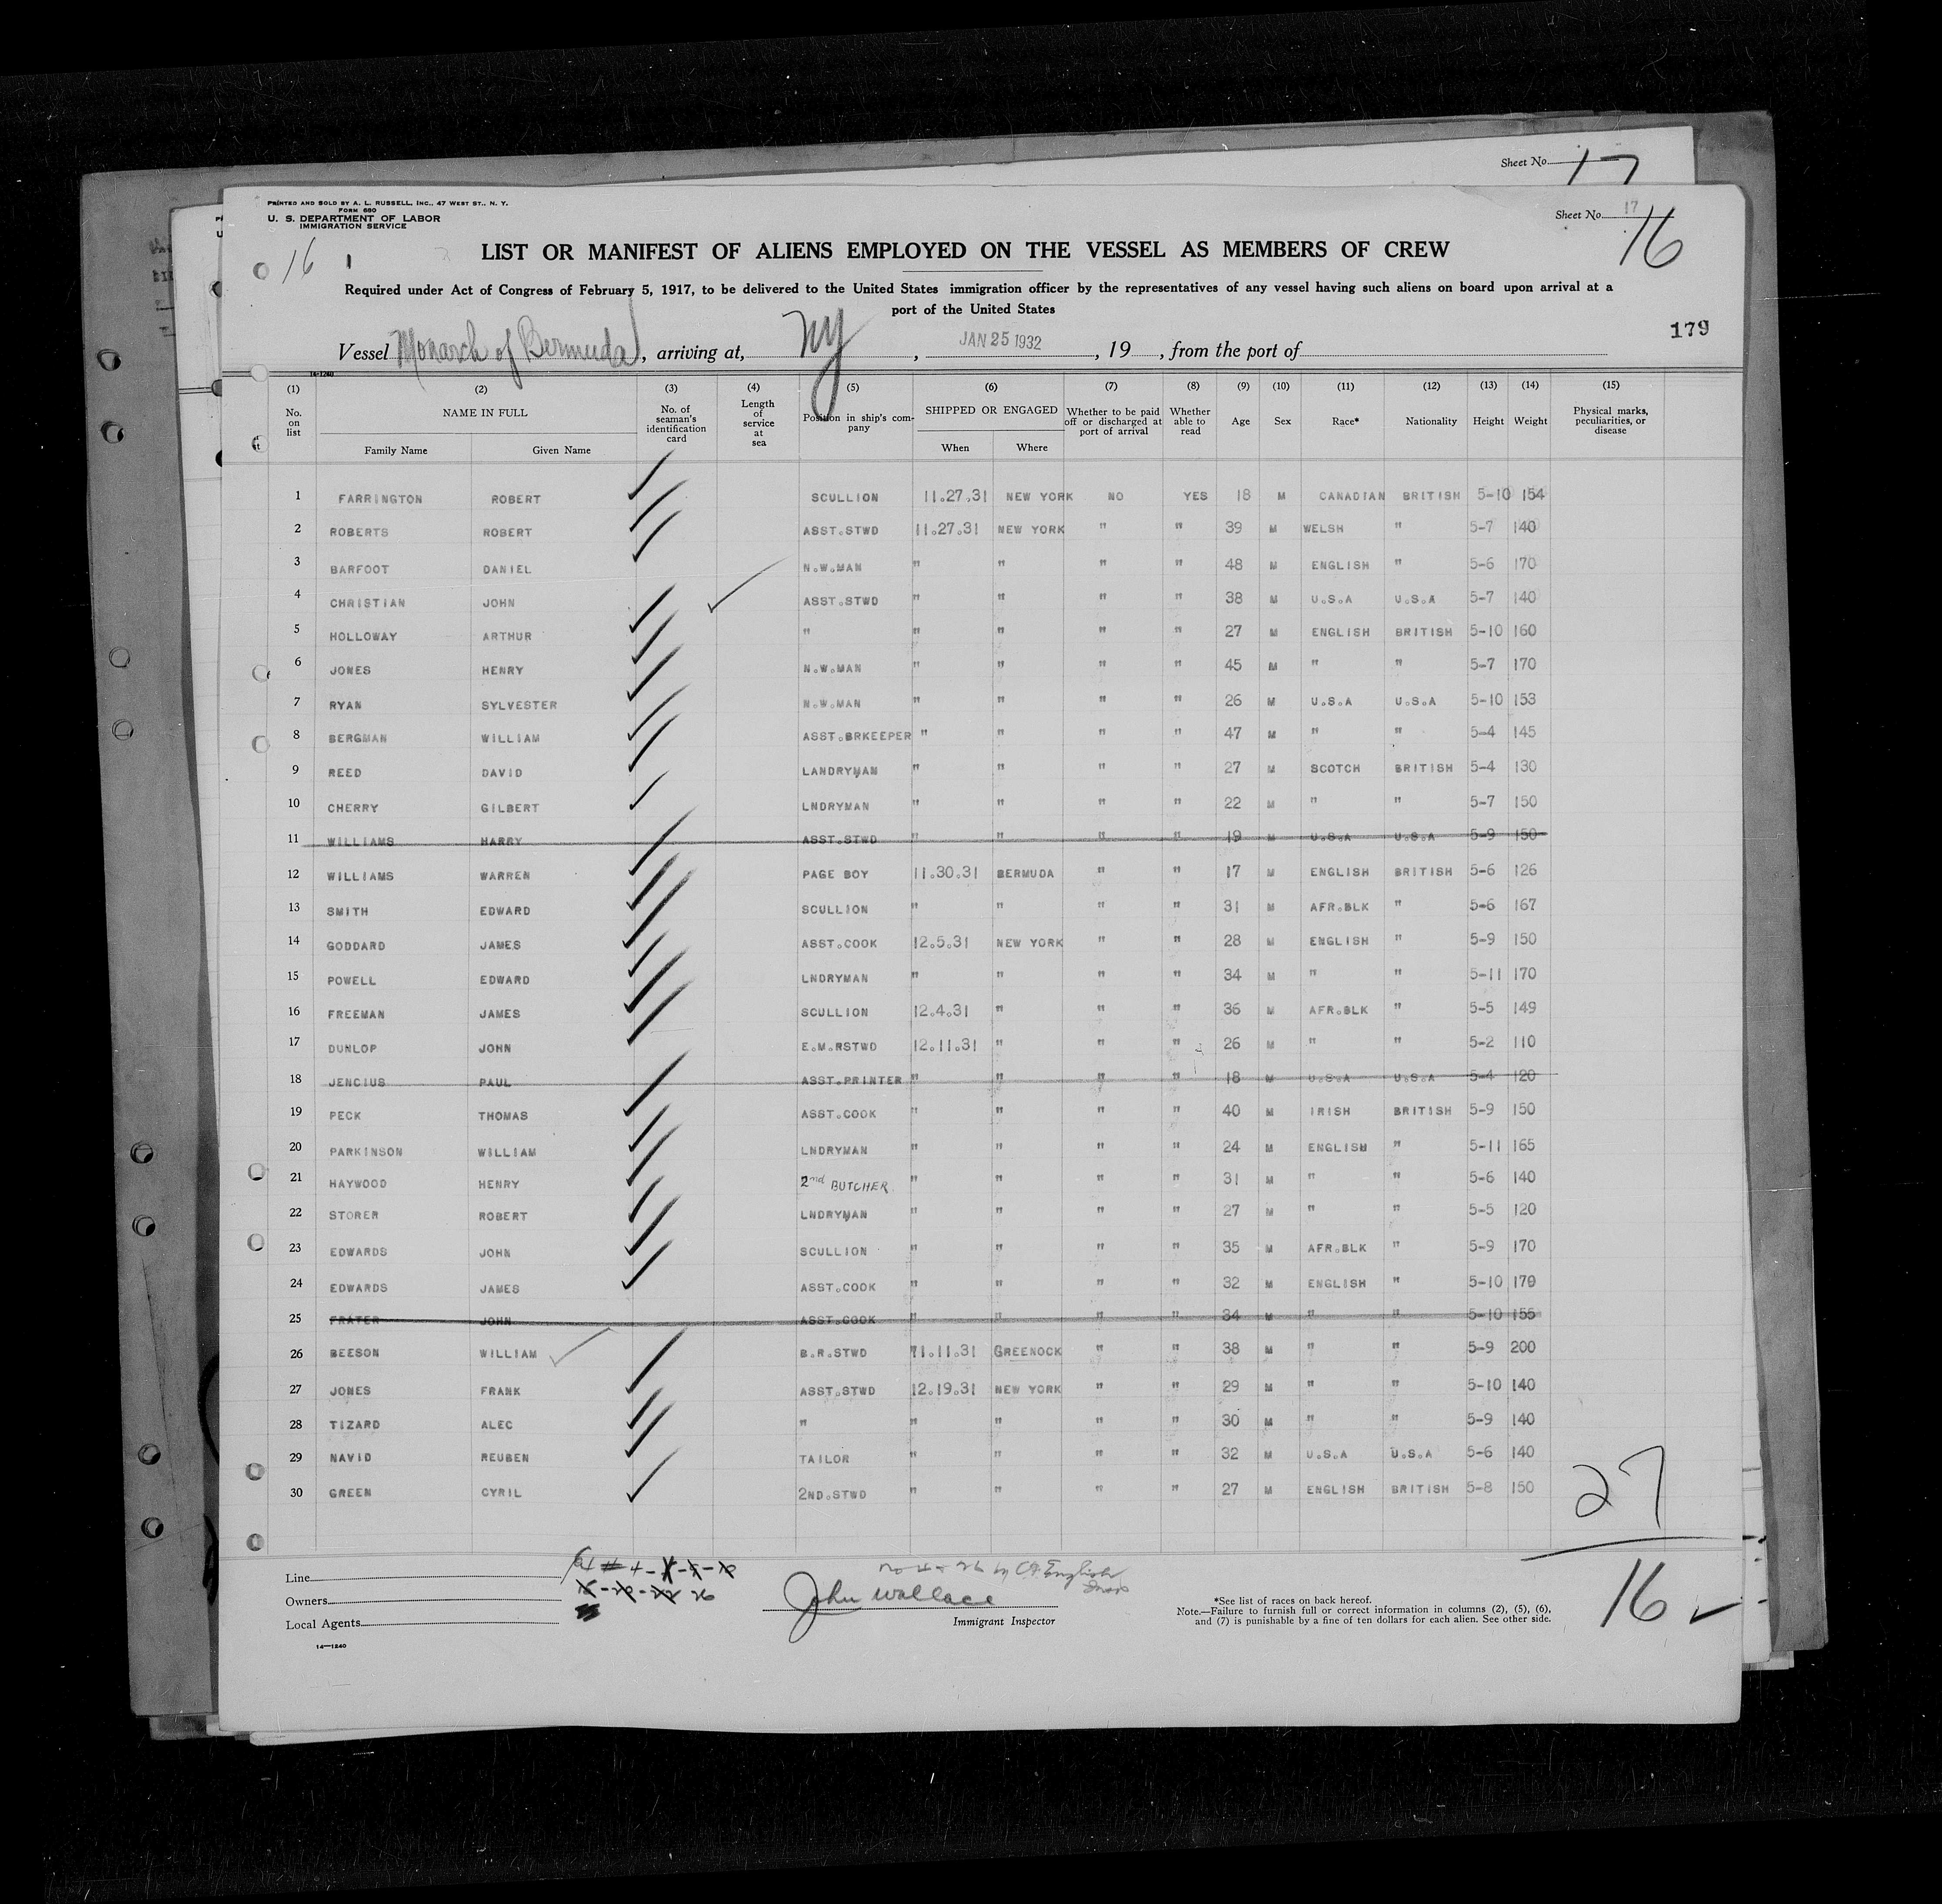 Sheet No. 17
PRINTED AND SOLD BY A. L. RUSSELL, INC., 47 WEST ST., N. Y.
FORM 680
U. S. DEPARTMENT OF LABOR
IMMIGRATION SERVICE
Sheet No. 17
16
16
LIST OR MANIFEST OF ALIENS EMPLOYED ON THE VESSEL AS MEMBERS OF CREW
Required under Act of Congress of February 5, 1917, to be delivered to the United States immigration officer by the representatives of any vessel having such aliens on board upon arrival at a
port of the United States
179
Vessel Monarch of Bermuda, arriving at, NY, JAN 25 1932, 19, from the port of
14-1240
(1) (2) (3) (4) (5) (6) (7) (8) (9) (10) (11) (12) (13) (14) (15)
No. on list NAME IN FULL No. of seaman's identification card Length of service at sea Position in ship's company SHIPPED OR ENGAGED Whether to be paid off or discharged at port of arrival Whether able to read Age Sex Race* Nationality Height Weight Physical marks, peculiarities, or disease
Family Name Given Name When Where
1 FARRINGTON ROBERT SCULLION 11.27.31 NEW YORK NO YES 18 M CANADIAN BRITISH 5-10 154
2 ROBERTS ROBERT ASST.STWD 11.27.31 NEW YORK " " 39 M WELSH " 5-7 140
3 BARFOOT DANIEL N.W.MAN " " " " 48 M ENGLISH " 5-6 170
4 CHRISTIAN JOHN ASST.STWD " " " " 38 M U.S.A U.S.A 5-7 140
5 HOLLOWAY ARTHUR " " " " " 27 M ENGLISH BRITISH 5-10 160
6 JONES HENRY N.W.MAN " " " " 45 M " " 5-7 170
7 RYAN SYLVESTER N.W.MAN " " " " 26 M U.S.A U.S.A 5-10 153
8 BERGMAN WILLIAM ASST.BRKEEPER " " " " 47 M " " 5-4 145
9 REED DAVID LANDRYMAN " " " " 27 M SCOTCH BRITISH 5-4 130
10 CHERRY GILBERT LNDRYMAN " " " " 22 M " " 5-7 150
11 WILLIAMS HARRY ASST.STWD " " " " 19 M U.S.A U.S.A 5-9 150
12 WILLIAMS WARREN PAGE BOY 11.30.31 BERMUDA " " 17 M ENGLISH BRITISH 5-6 126
13 SMITH EDWARD SCULLION " " " " 31 M AFR.BLK " 5-6 167
14 GODDARD JAMES ASST.COOK 12.5.31 NEW YORK " " 28 M ENGLISH " 5-9 150
15 POWELL EDWARD LNDRYMAN " " " " 34 M " " 5-11 170
16 FREEMAN JAMES SCULLION 12.4.31 " " " 36 M AFR.BLK " 5-5 149
17 DUNLOP JOHN E.M.RSTWD 12.11.31 " " " 26 M " " 5-2 110
18 JENCIUS PAUL ASST.PRINTER " " " " 18 M U.S.A U.S.A 5-4 120
19 PECK THOMAS ASST.COOK " " " " 40 M IRISH BRITISH 5-9 150
20 PARKINSON WILLIAM LNDRYMAN " " " " 24 M ENGLISH " 5-11 165
21 HAYWOOD HENRY 2nd BUTCHER " " " " 31 M " " 5-6 140
22 STORER ROBERT LNDRYMAN " " " " 27 M " " 5-5 120
23 EDWARDS JOHN SCULLION " " " " 35 M AFR.BLK " 5-9 170
24 EDWARDS JAMES ASST.COOK " " " " 32 M ENGLISH " 5-10 179
25 FRATER JOHN ASST.COOK " " " " 34 M " " 5-10 155
26 BEESON WILLIAM B.R.STWD 11.11.31 GREENOCK " " 38 M " " 5-9 200
27 JONES FRANK ASST.STWD 12.19.31 NEW YORK " " 29 M " " 5-10 140
28 TIZARD ALEC " " " " " 30 M " " 5-9 140
29 NAVID REUBEN TAILOR " " " " 32 M U.S.A U.S.A 5-6 140
30 GREEN CYRIL 2ND.STWD " " " " 27 M ENGLISH BRITISH 5-8 150
27
Line
Owners
Local Agents
14-1240
26
John Wallace
Immigrant Inspector
*See list of races on back hereof.
Note.—Failure to furnish full or correct information in columns (2), (5), (6),
and (7) is punishable by a fine of ten dollars for each alien. See other side.
16